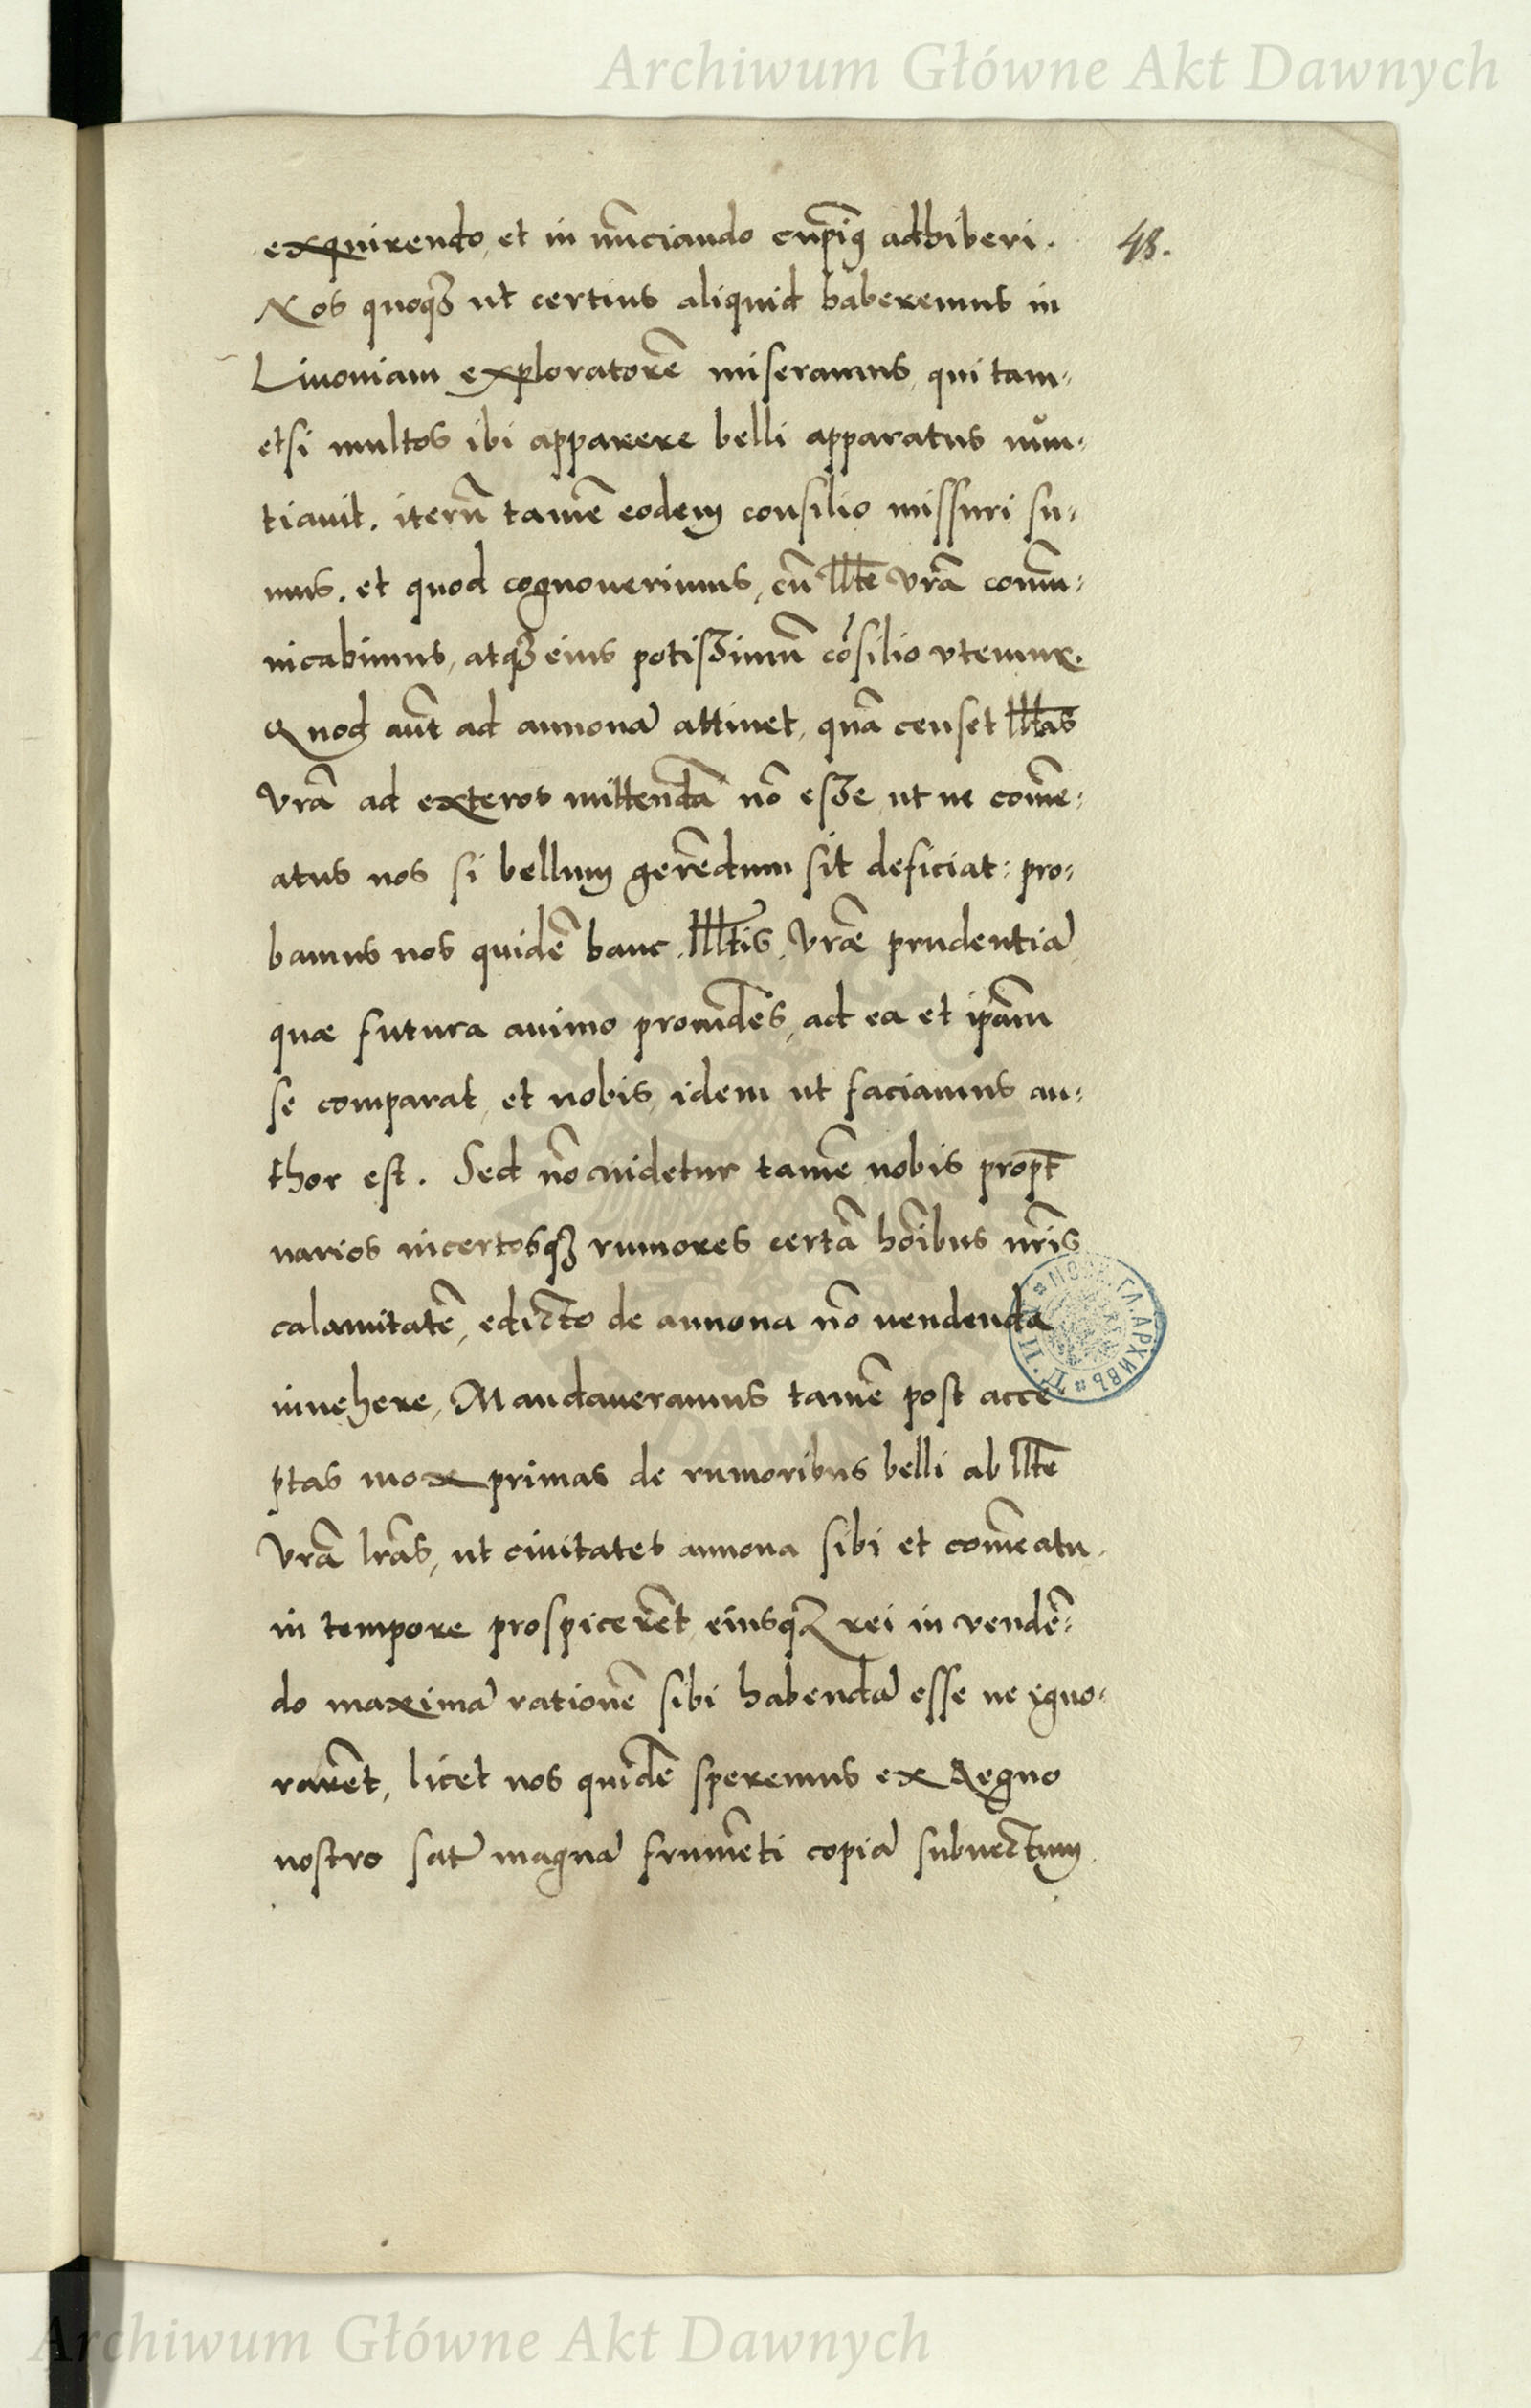 Archiwum Główne Akt Dawnych
exquirendo, et in nũciando cupim9 adhiberi.
48.
Nos quoqȝ ut certius aliquid haberemus in
Liuoniam exploratorẽ miseramus, qui tam-
etsi multos ibi apparere belli apparatus nun-
tiauit. iterũ tamẽ eodem consilio missuri su-
mus. et quod cognouerimus, cũ Illte Vrã comu-
nicabimus, atqȝ eius potissimũ cõsilio vtemur.
Quod aũt ad annonã attinet, quã censet Illtas
Vrã ad exteros mittendã nõ esse, ut ne comẽ-
atus nos si bellum gerẽdum sit deficiat: pro-
bamus nos quidẽ hanc Illtis Vræ prudentiã
quæ futura animo prouidẽs, ad ea et ipãm
se comparat, et nobis, idem ut faciamus au-
thor est. Sed nõ uidetur tamẽ nobis propt
uarios incertosqȝ rumores certã hõibus nrĩs
calamitatẽ, edicto de annona nõ uendenda
inuehere, Mandaueramus tamẽ post acce
ptas mox primas de rumoribus belli ab Illte
Vrã lrãs, ut ciuitates annona sibi et comẽatu
in tempore prospicerẽt, eiusqȝ rei in vendẽ-
do maximã rationẽ sibi habendã esse ne igno-
rarẽt, licet nos quidẽ speremus ex Regno
nostro satis magnã frumẽti copiã subuectum
МОСК. ГЛ. АРХИВЪ
Archiwum Główne Akt Dawnych